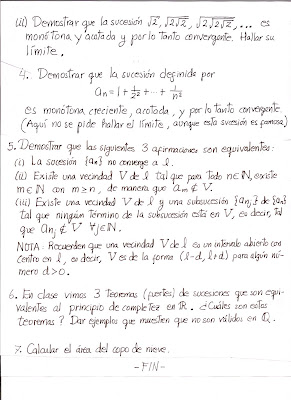 (iii) Demostrar que la sucesión √2, √(2√2), √(2√(2√2)), ... es
monótona y acotada y por lo tanto convergente. Hallar su
límite.
4. Demostrar que la sucesión definida por
aₙ = 1 + 1/2² + ··· + 1/n²
es monótona creciente, acotada, y por lo tanto convergente.
(Aquí no se pide hallar el límite, aunque esta sucesión es famosa)
5. Demostrar que las siguientes 3 afirmaciones son equivalentes:
(i) La sucesión {aₙ} no converge a l.
(ii) Existe una vecindad V de l tal que para todo n∈ℕ, existe
m∈ℕ con m≥n, de manera que aₘ∉V.
(iii) Existe una vecindad V de l y una subsucesión {aₙⱼ} de {aₙ}
tal que ningún término de la subsucesión está en V, es decir, tal
que aₙⱼ∉V ∀j∈ℕ.
NOTA: Recuerden que una vecindad V de l es un intervalo abierto con
centro en l, es decir, V es de la forma (l-d, l+d) para algún nú-
mero d>0.
6. En clase vimos 3 Teoremas (fuertes) de sucesiones que son equi-
valentes al principio de completez en ℝ. ¿Cuáles son estos
teoremas? Dar ejemplos que muestren que no son válidos en ℚ.
7. Calcular el área del copo de nieve.
-FIN-